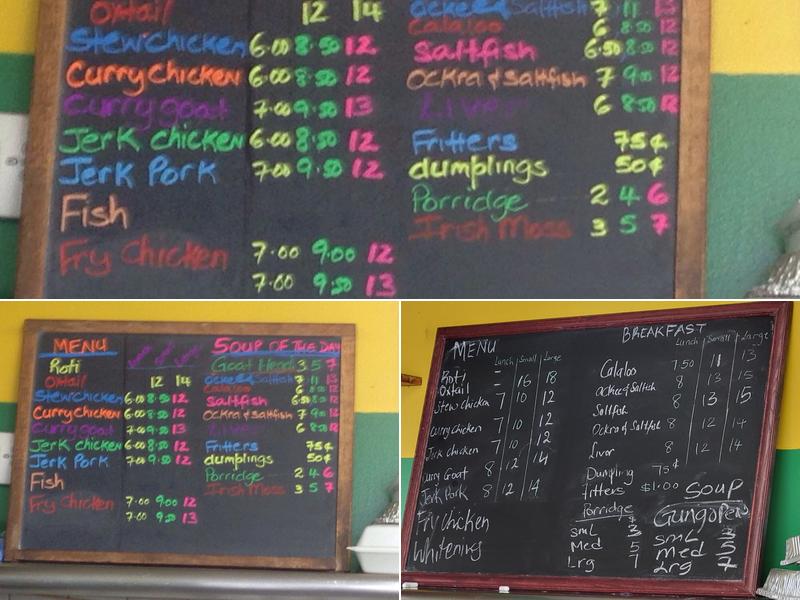 Oxtail 12 14
Stew chicken 6.00 8.50 12
Curry Chicken 6.00 8.50 12
Curry goat 7.00 9.50 13
Jerk chicken 6.00 8.50 12
Jerk Pork 7.00 9.50 12
Fish
Fry Chicken 7.00 9.00 12
7.00 9.50 13
Ackee & Saltfish 7 11 13
Calaloo 6 8.50 12
Saltfish 6.50 8.50 12
Ockra & Saltfish 7 9.00 12
Liver 6 8.50 12
Fritters 75¢
dumplings 50¢
Porridge 2 4 6
Irish Moss 3 5 7
MENU
Roti
Oxtail 12 14
Stew chicken 6.00 8.50 12
Curry Chicken 6.00 8.50 12
Curry goat 7.00 9.50 13
Jerk chicken 6.00 8.50 12
Jerk Pork 7.00 9.50 12
Fish
Fry Chicken 7.00 9.00 12
7.00 9.50 13
SOUP OF THE DAY
Goat Head 3 5 7
Ackee & Saltfish 7 11 13
Calaloo 6 8.50 12
Saltfish 6.50 8.50 12
Ockra & Saltfish 7 9.00 12
Liver 6 8.50 12
Fritters 75¢
dumplings 50¢
Porridge 2 4 6
Irish Moss 3 5 7
MENU Lunch Small Large
Roti
Oxtail – 16 18
Stew chicken 7 10 12
Curry chicken 7 10 12
Jerk Chicken 7 10 12
Curry Goat 8 12 14
Jerk Pork 8 12 14
Fry chicken
Whitening
BREAKFAST
Lunch Small Large
Calaloo 7.50 11 13
Ackee & Saltfish 8 13 15
Saltfish 8 13 15
Ockra & Saltfish 8 12 14
Livor 8 12 14
Dumpling 75¢
fritters $1.00
Porridge $
smL 3
Med 5
Lrg 7
SOUP
Gungo Pea
smL 3
med 5
Lrg 7